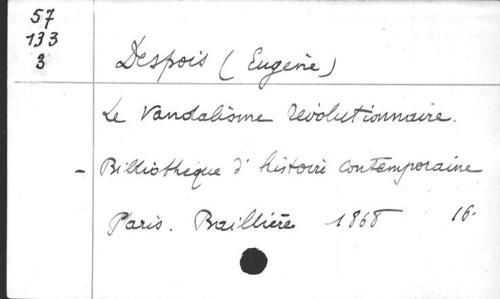 57
133
3
Despois (Eugène)
Le Vandalisme révolutionnaire.
- Bibliothèque d'histoire contemporaine
Paris. Baillière 1868 16.